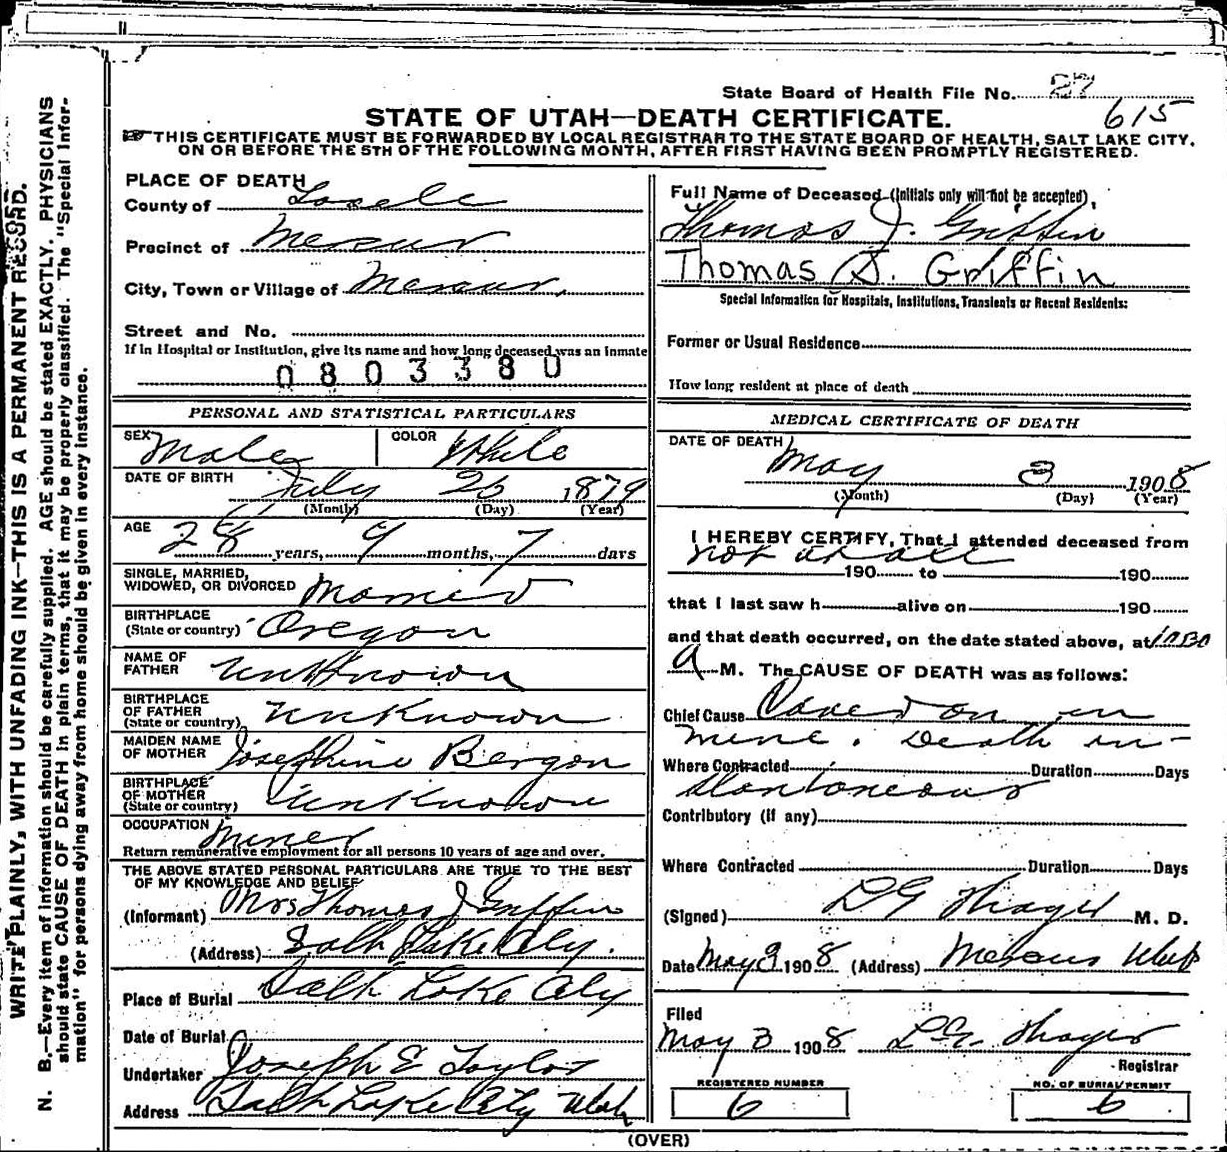 State Board of Health File No. 27
615
STATE OF UTAH—DEATH CERTIFICATE.
THIS CERTIFICATE MUST BE FORWARDED BY LOCAL REGISTRAR TO THE STATE BOARD OF HEALTH, SALT LAKE CITY,
ON OR BEFORE THE 5TH OF THE FOLLOWING MONTH, AFTER FIRST HAVING BEEN PROMPTLY REGISTERED.
WRITE PLAINLY, WITH UNFADING INK—THIS IS A PERMANENT RECORD.
N. B.—Every item of information should be carefully supplied. AGE should be stated EXACTLY. PHYSICIANS
should state CAUSE OF DEATH in plain terms, that it may be properly classified. The "Special Infor-
mation" for persons dying away from home should be given in every instance.
PLACE OF DEATH
County of Tooele
Precinct of Mercur
City, Town or Village of Mercur,
Street and No.
If in Hospital or Institution, give its name and how long deceased was an inmate
0803380
PERSONAL AND STATISTICAL PARTICULARS
SEX Male COLOR White
DATE OF BIRTH July 26 1879
(Month) (Day) (Year)
AGE 28 years, 9 months, 7 days
SINGLE, MARRIED,
WIDOWED, OR DIVORCED Married
BIRTHPLACE
(State or country) Oregon
NAME OF
FATHER Unknown
BIRTHPLACE
OF FATHER
(State or country) Unknown
MAIDEN NAME
OF MOTHER Josephine Bergon
BIRTHPLACE
OF MOTHER
(State or country) Unknown
OCCUPATION Miner
Return remunerative employment for all persons 10 years of age and over.
THE ABOVE STATED PERSONAL PARTICULARS ARE TRUE TO THE BEST
OF MY KNOWLEDGE AND BELIEF
(Informant) Mrs Thomas J Griffin
(Address) Salt Lake City.
Place of Burial Salt Lake City
Date of Burial
Undertaker Joseph E Taylor
Address Salt Lake City Utah
Full Name of Deceased (Initials only will not be accepted),
Thomas J. Griffin
Thomas J. Griffin
Special Information for Hospitals, Institutions, Transients or Recent Residents:
Former or Usual Residence
How long resident at place of death
MEDICAL CERTIFICATE OF DEATH
DATE OF DEATH
May 3 1908
(Month) (Day) (Year)
I HEREBY CERTIFY, That I attended deceased from
not at all
190 to 190
that I last saw h alive on 190
and that death occurred, on the date stated above, at 1030
A M. The CAUSE OF DEATH was as follows:
Chief Cause Caved on in
mine. Death in-
Where Contracted Duration Days
stantaneous
Contributory (if any)
Where Contracted Duration Days
(Signed) Thayer M. D.
Date May 3 1908 (Address) Mercur Utah
Filed
May 3 1908 Thayer
Registrar
REGISTERED NUMBER
6
NO. OF BURIAL PERMIT
6
(OVER)